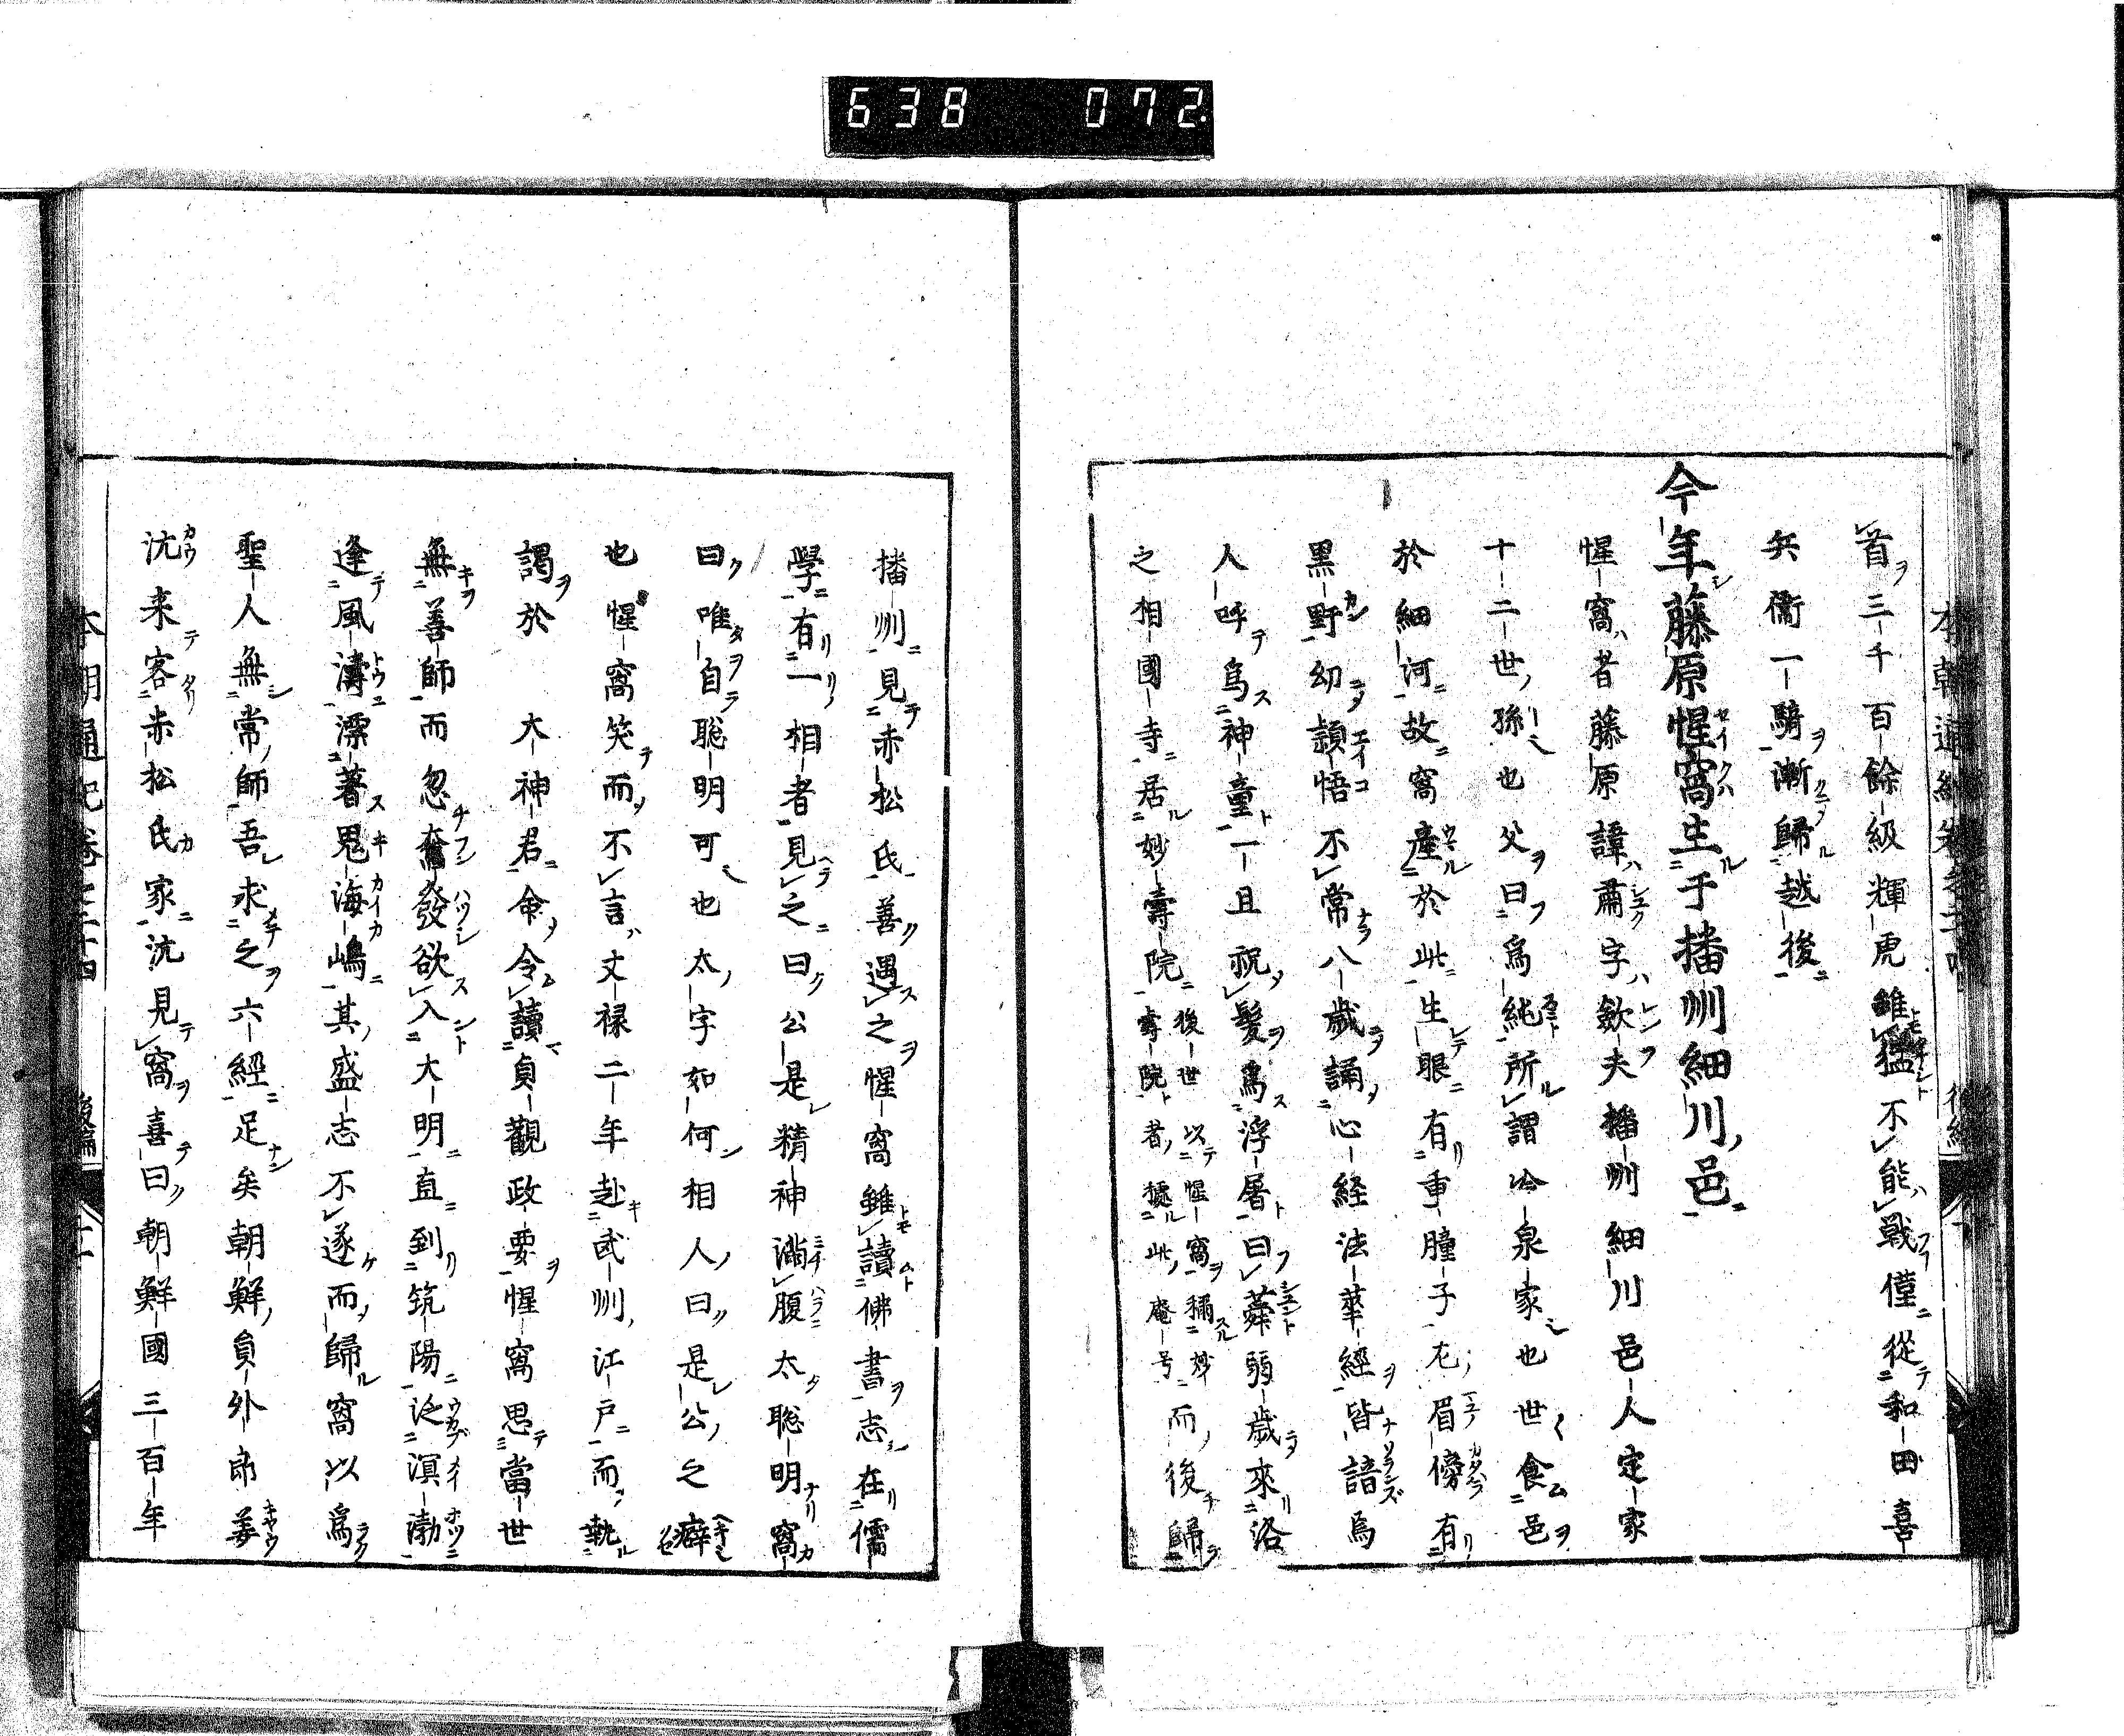 638 072
首三千百餘級輝虎雖猛不能戰僅從和田喜
兵衞一騎漸歸越後
今年藤原惺窩生于播州細川邑
惺窩者藤原諱肅字歛夫播州細川邑人定家
十二世孫也父曰爲純所謂冷泉家也世食邑
於細河故窩產於此生眼有重瞳子左眉傍有
黑野幼頴悟不常八歲誦心経法華經皆諳焉
人呼爲神童一旦祝髮爲浮屠曰蕣弱歲來洛
之相國寺居妙壽院後世以惺窩稱妙
壽院者據此庵号而後歸
播州見赤松氏善遇之惺窩雖讀佛書志在儒
學有一相者見之曰公是精神滿腹太聡明窩
曰唯自聡明可也太字如何相人曰是公之癖
也惺窩笑而不言文禄二年赴武州江戸而執
謁於 大神君命令讀貞觀政要惺窩思當世
無善師而忽奮發欲入大明直到筑陽泛溟渤
逢風濤漂著鬼海嶋其盛志不遂而歸窩以爲
聖人無常師吾求之六經足矣朝鮮員外郎姜
沆来客赤松氏家沆見窩喜曰朝鮮國三百年
本朝通紀卷之二十四 後編